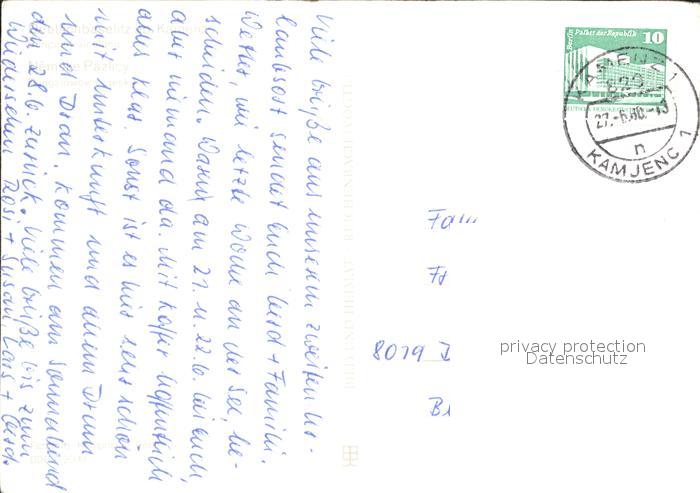 Viele Grüße aus unserem zweiten Ur-
laubsort sendet Euch Gerd + Familie.
Wetter, wie letzte Woche an der See, be-
scheiden. Waren am 21. u. 22.6. bei euch,
aber niemand da. Mit Koffer hoffentlich
alles klar. Sonst ist es hier sehr schön
mit Unterkunft und allem Drum
und Dran. Kommen am Sonnabend
den 28.6. zurück. Viele Grüße bis zum
Wiedersehen Rosi + Susan Lars + Gerd.
Berlin Palast der Republik
10
KAMENZ 1
829
27.-6.80.-13
n
KAMJENC 1
Fam
8019
privacy protection
Datenschutz
BILD UND HEIMAT REICHENBACH